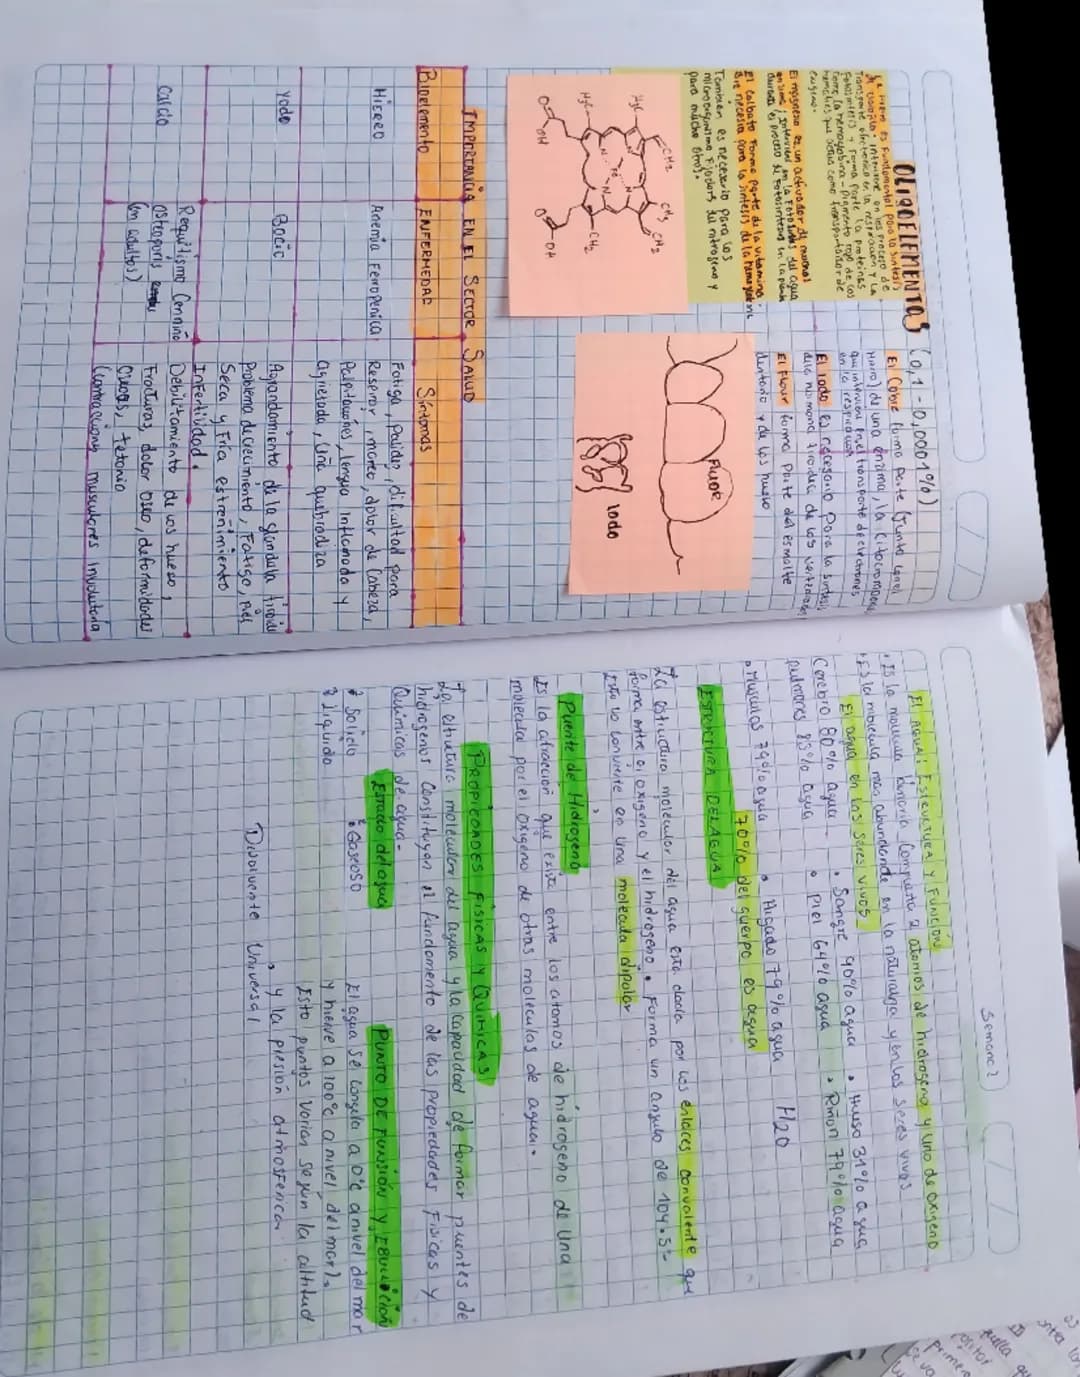 OLIGOELEMENTOS (0,1 - 0,0001%)
El Hierro es Fundamental para la síntesis
de clorofila, interviene en los proceso de
Transporte electronico en la respiración y la
Fotosíntesis y forma parte la proteínas
como la hemoglobina - Pigmento rojo de los
hematíes que actua como transportador de
oxígeno.
El magneso es un activador de
enzimas intervienen en la Fotolisis del agua
durante el proceso de Fotosíntesis en la planta
El Colbato Forma parte de la vitamina
Bre necesita para la síntesis de la hemoglobina
Tambien es necesario para los
microorganismo Fijadors del nitrogeno y
para mucho otros.
El Cobre forma parte (junto con el
Hierro) de una enzima, la citocromooxi
que intervien en el transporte de electrones
en la respiración
El Iodo es necesario para la síntesis
de hormona tiroidea de los vertebrados
El Flour forma parte del esmalte
dentario y de los hueso
H₃C CH₂
CH₃
CH₂
N N Fe N N
H₃C CH₂
O OH O OH
Fluor
Iodo
IMPORTANCIA EN EL SECTOR SALUD
Bioelemento ENFERMEDAD Síntomas
Hierro Anemia Ferropenica Fatiga, palidez, dificultad para
Respirar, mareo, dolor de Cabeza,
Palpitaciones, lengua inflamada y
agrietada, Uña quebradiza
Yodo Bocio Agrandamiento de la glandula tiroides
Problema de crecimiento, Fatiga, piel
Seca y Fria estreñimiento
Infertilidad.
Calcio Requitismo Cen niño Debilitamiento de los hueso,
osteoporis Fracturas, dolor oseo, deformidades
(en adultos) Oseas, tetania
(contracciones musculares Involuntaria
Semana 2
El agua: ESTRUCTURA Y FUNCION
• Es la molecula binaria Compuesta 2 atomos de hidrogeno y uno de oxigeno
• Es la molecula mas abundande en la naturaleza y en los Seres vivos
El agua en los Seres vivos
Cerebro 80% agua • Sangre 90% agua • Hueso 31% agua
pulmones 83% agua • Piel 64% agua • Riñon 79% agua
• Musculos 79% agua • Higado 79% agua H2O
70% del querpo es agua
ESTRUCTURA DEL AGUA
La estructura molecular del agua esta dada por los enlaces convalente que
forma entre el oxigeno y el hidrogeno. Forma un angulo de 104.5°
Esto lo convierte en una molecula dipolar
Puente de Hidrogeno
Es la atracción que existe entre los atomos de hidrogeno de una
molecula por el oxigeno de otras moleculas de agua.
PROPIEDADES FISICAS Y QUIMICAS
La estrutura molecular del agua y la capacidad de formar puentes de
hidrogenos Constituyen el fundamento de las propiedades Fisicas y
Quimicas de agua-
Estado del agua PUNTO DE FUNSIÓN Y EBULLICIÓN
Solido • Gaseoso El agua se congela a 0°c anivel del mar
Liquido y hierve a 100°c a nivel del mar).
Esto puntos varian según la caltitud
y la presión atmosferica.
Disolvente Universal